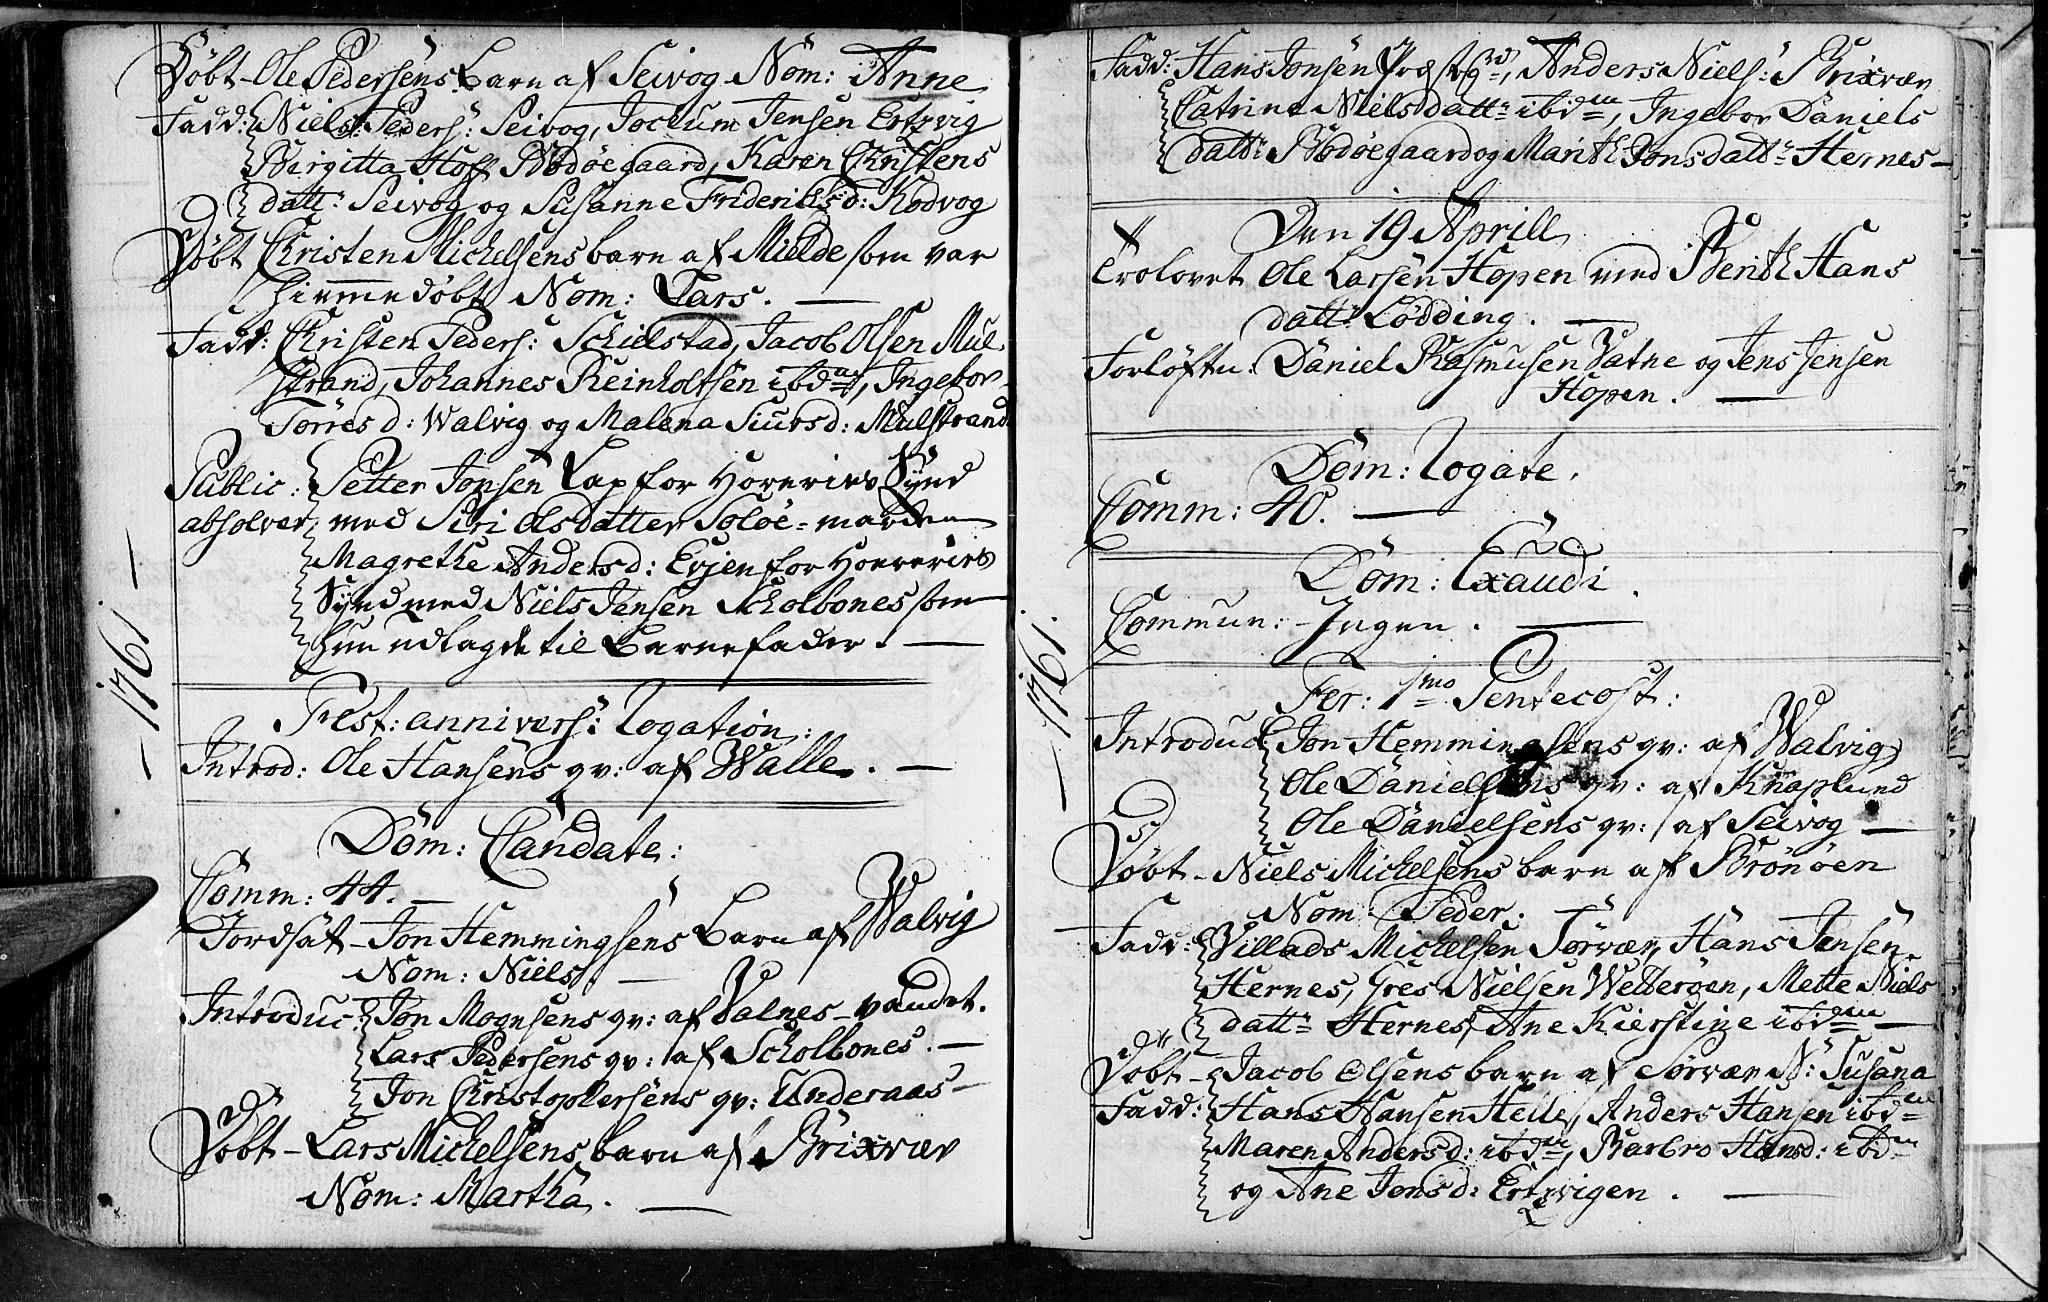 Döbt - Ole Pedersens Barn af Seivog Nom: Anne
Fadd: Niels Peders: Seivog, Jochum Jensen Ertzvig
Birgitta Hoff Bodöegaard, Karen Christens
datt: Seivog og Susanne Friderichsd: Kodvog
Döbt Christen Michelsens barn af Mielde som var
hiemmedöbt Nom: Lars. —
Fadd: Christen Peders: Schielstad, Jacob Olsen Mul
strand, Johannes Reinholtsen ibdm, Ingebor
Törresd: Walvig og Malena Siursd: Mulstrand
Public: Petter Jonsen Lap for Horeries Synd
absolver: med Siri Olsdatter Solöe-marken
Magrethe Andersd: Evjen for Horeries
Synd med Niels Jensen Scholbones som
hun udlagde til Barnefader. —
-1761-
Fest: annivers: Rogation:
Introd: Ole Hansens qv: af Walle. —
Dom: Candate:
Comm: 44. —
Jordsat - Jon Hemmingsens Barn af Walvig
Nom: Niels. —
Introduc: Jon Mognsens qv: af Valnes-vandet.
Lars Pedersens qv: af Scholbones. —
Jon Christophersens qv: Underaas -
Döbt - Lars Michelsens barn af Brixvær
Nom: Martha. —
Fadd: Hans Jonsen Præstgrd, Anders Niels: Brixvær
Catrine Nielsdattr ibdm, Ingebor Daniels
dattr Bodöegaard og Marith Jonsdattr Hernes —
Den 19 Aprill
Trolovet Ole Larsen Hopen med Berith Hans
datt: Lödding. —
Forlöftn: Daniel Rasmusen Vatne og Jens Jensen
Hopen. —
Dom: Rogate.
Comm: 40. —
Dom: Exaudi.
Commun: - Ingen. —
-1761.
Fer: 1mo Pentecost:
Introduc Jon Hemmingsens qv: af Walvig
Ole Danielsens qv: af Knaplund
Ole Danielsens qv: af Seivog —
Döbt - Niels Michelsens barn af Brönöen
Nom: Peder.
Fadd: Villads Michelsen Törvær, Hans Jensen
Hernes, Gres Nielsen Wetteröen, Mette Niels
dattr Hernes, Ane Kierstine ibdm —
Döbt - Jacob Olsens barn af Sörvær N: Susana
Fadd: Hans Hansen Heile, Anders Hansen ibdm
Maren Andersd: ibdm, Barbro Hansd: ibdm
og Ane Jonsd: Ertzvigen. —